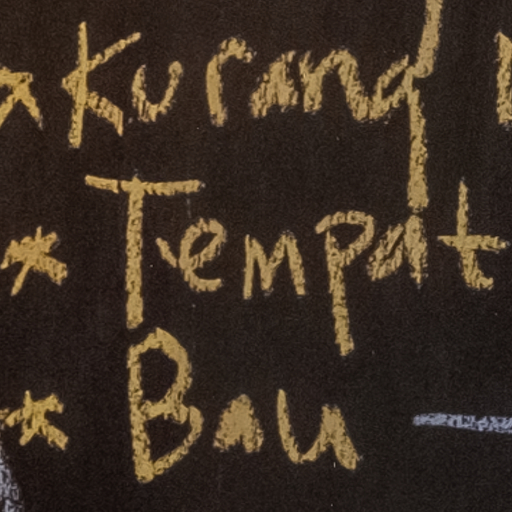 * Kurang
* Tempat
* Bau